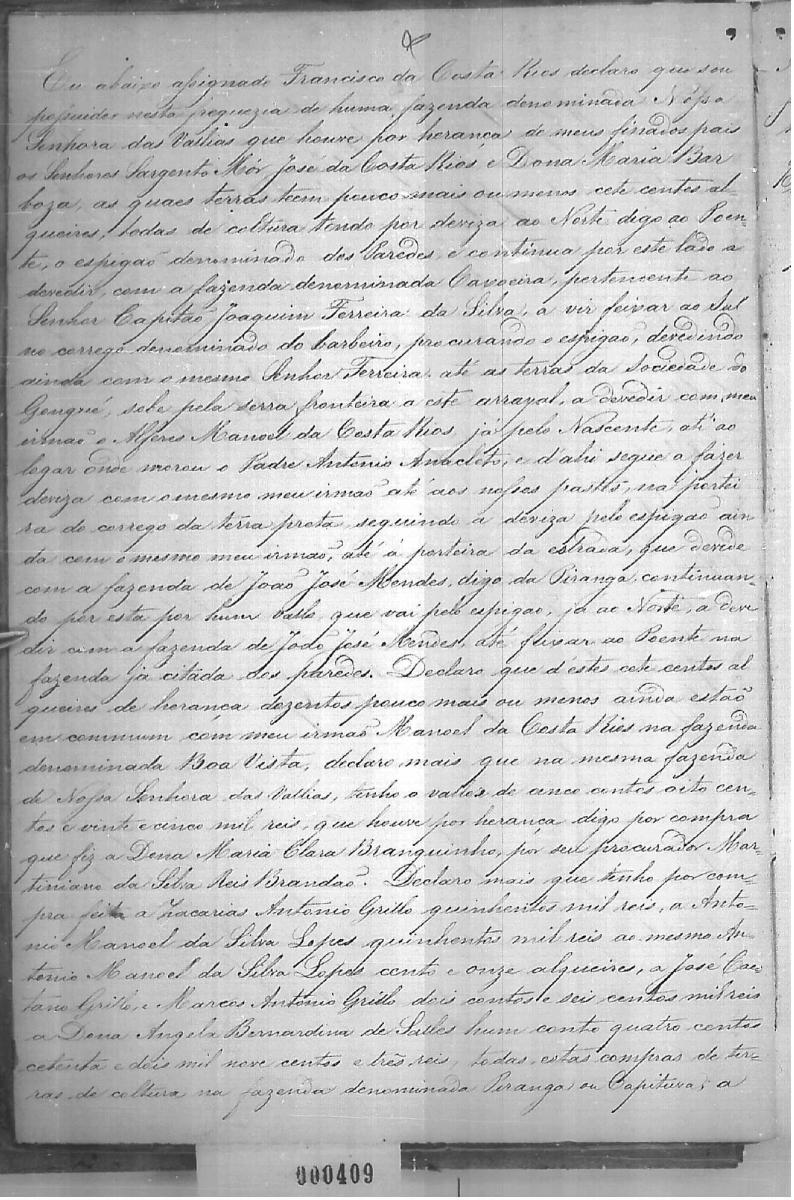 Eu abaixo assignado Francisco da Costa Rios declaro que sou
possuidor nesta freguezia de huma fazenda denominada Nossa
Senhora das Vallias que houve por herança de meus finados pais
os Senhores Sargento Mór José da Costa Rios e Dona Maria Bar
boza, as quaes terras tem pouco mais ou menos cete centos al-
queires, todas de coltura tendo por deviza ao Norte digo ao Poen-
te, o espigaõ denominado dos Paredes, e continua por este lado a
devedir, com a fazenda denominada Cavoeira, pertencente ao
Senhor Capitaõ Joaquim Ferreira da Silva, a vir feixar ao Sul
no corrego denominado do barbeiro, procurando o espigaõ, devedindo
ainda com o mesmo Senhor Ferreira até as terras da Sociedade do
sobe pela serra fronteira a este arrayal, a devedir com meu
irmaõ o Alferes Manoel da Costa Rios já pelo Nascente, até ao
logar onde morou o Padre Antonio Anacleto, e d'ahi segue a fazer
deviza com o mesmo meu irmaõ até aos nossos pastos, na portei
ra do corrego da terra preta, seguindo a deviza pelo espigaõ ain
da com o mesmo meu irmaõ, até á porteira da estrada, que devede
com a fazenda de Joaõ José Mendes, digo da Piranga, continuan-
do por esta por hum vallo, que vai pelo espigaõ, já ao Norte, a deve
dir com a fazenda de Joaõ José Mendes, até feixar ao Poente na
fazenda já citada dos paredes. Declaro que d'estes cete centos al
queires de herança dozentos pouco mais ou menos ainda estaõ
em commum com meu irmaõ Manoel da Costa Rios na fazenda
denominada Boa Vista, declaro mais que na mesma fazenda
de Nossa Senhora das Vallias, tenho o vallor de cinco contos oito cen-
tos e vinte e cinco mil reis, que houve por herança digo por compra
que fiz a Dona Maria Clara Branquinho, por seu procurador Mar-
tiniano da Silva Reis Brandaõ. Declaro mais que tenho por com-
pra feita a Zacarias Antonio Grillo quinhentos mil reis, a Anto-
nio Manoel da Silva Lopes quinhentos mil reis ao mesmo An-
tonio Manoel da Silva Lopes cento e onze alqueires, a José Cae-
tano Grillo, e Marcos Antonio Grillo dois contos e seis centos mil reis
a Dona Angela Bernardina de Salles hum conto quatro centos
cetenta e dois mil nove centos e três reis, todas estas compras de ter-
ras de coltura na fazenda denominada Piranga ou Capituva; a
000409